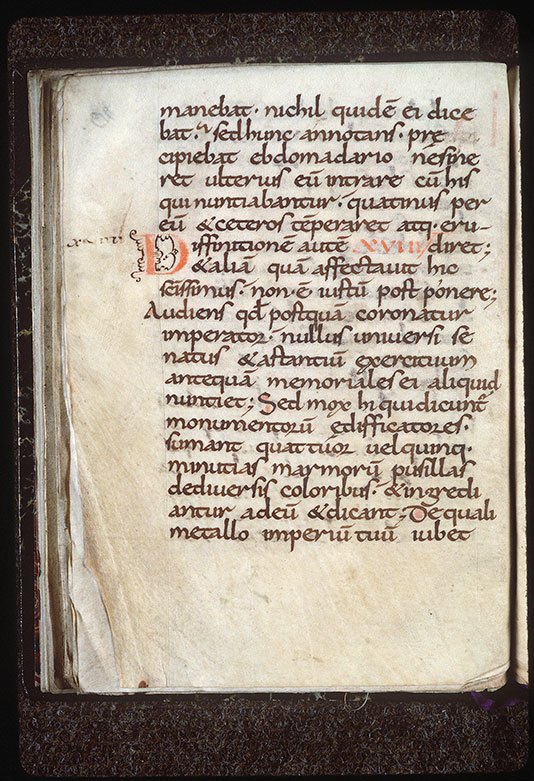 manebat· nichil quidē ei dice
bat·' sed hunc annotans· pre
cipiebat ebdomadario ne sine
ret ulterius eū intrare cū his
qui nuntiabantur· quatinus per
eū & ceteros tēperaret atq· eru-
Diffinitionē autē XVIII diret;
& aliam quā affectavit hic
sc̄issimus· non ē iustū post ponere;
Audiens qđ postquā coronatur
imperator· nullus universi se
natus & astantiū exercituum
antequā memoriales ei aliquid
nuntiet; Sed mox hi qui dicunt᷑
monumentorū edifficatores·
sumant quattuor vel quinq·
minutias marmorū pusillas
de diversis coloribus· & ingredi
antur ad eū & dicant; De quali
metallo imperiū tuū iubet